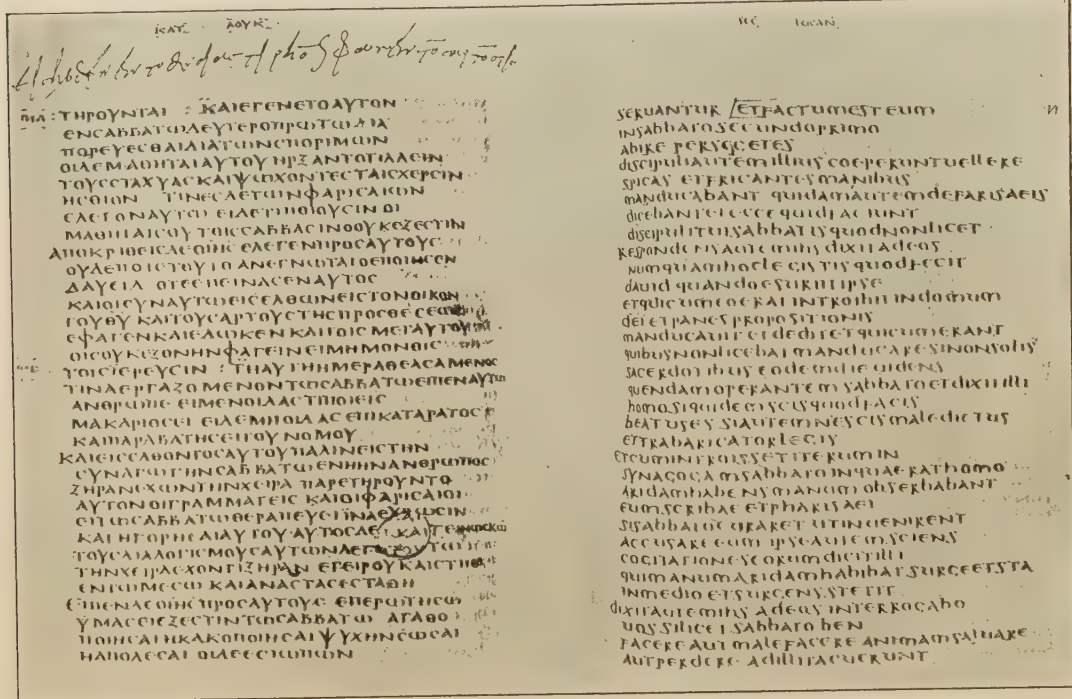 ΚΑΤ ΛΟΥΚ
ΤΗΡΟΥΝΤΑΙ : ΚΑΙΕΓΕΝΕΤΟΑΥΤΟΝ
ΕΝΣΑΒΒΑΤΩΔΕΥΤΕΡΟΠΡΩΤΩΔΙΑ
ΠΟΡΕΥΕΣΘΑΙΔΙΑΤΩΝΣΠΟΡΙΜΩΝ
ΟΙΔΕΜΑΘΗΤΑΙΑΥΤΟΥΗΡΞΑΝΤΟΤΙΛΛΕΙΝ
ΤΟΥΣΣΤΑΧΥΑΣΚΑΙΨΩΧΟΝΤΕΣΤΑΙΣΧΕΡΣΙΝ
ΗΣΘΙΟΝ ΤΙΝΕΣΔΕΤΩΝΦΑΡΙΣΑΙΩΝ
ΕΛΕΓΟΝΑΥΤΩ ΕΙΔΕΤΙΠΟΙΟΥΣΙΝΟΙ
ΜΑΘΗΤΑΙΣΟΥΤΟΙΣΣΑΒΒΑΣΙΝΟΟΥΚΕΞΕΣΤΙΝ
ΑΠΟΚΡΙΘΕΙΣΔΕΟΙΗΣ ΕΛΕΓΕΝΠΡΟΣΑΥΤΟΥΣ
ΟΥΔΕΠΟΤΕΤΟΥΤΟΑΝΕΓΝΩΤΑΙΟΕΠΟΙΗΣΕΝ
ΔΑΥΕΙΔ ΟΤΕΕΠΕΙΝΑΣΕΝΑΥΤΟΣ
ΚΑΙΟΙΣΥΝΑΥΤΩΕΙΣΕΛΘΩΝΕΙΣΤΟΝΟΙΚΟΝ
ΤΟΥΘΥ ΚΑΙΤΟΥΣΑΡΤΟΥΣΤΗΣΠΡΟΣΘΕΣΕΩΣ
ΕΦΑΓΕΝΚΑΙΕΔΩΚΕΝΚΑΙΤΟΙΣΜΕΤΑΥΤΟΥ
ΟΙΣΟΥΚΕΞΟΝΗΝΦΑΓΕΙΝΕΙΜΗΜΟΝΟΙΣ
ΤΟΙΣΙΕΡΕΥΣΙΝ : ΤΗΑΥΤΗΗΜΕΡΑΘΕΑΣΑΜΕΝΟΣ
ΤΙΝΑΕΡΓΑΖΟΜΕΝΟΝΤΩΣΑΒΒΑΤΩΕΙΠΕΝΑΥΤΩ
ΑΝΘΡΩΠΕ ΕΙΜΕΝΟΙΔΑΣΤΙΠΟΙΕΙΣ
ΜΑΚΑΡΙΟΣΕΙ ΕΙΔΕΜΗΟΙΔΑΣΕΠΙΚΑΤΑΡΑΤΟΣ
ΚΑΙΠΑΡΑΒΑΤΗΣΕΙΤΟΥΝΟΜΟΥ
ΚΑΙΕΙΣΕΛΘΟΝΤΟΣΑΥΤΟΥΠΑΛΙΝΕΙΣΤΗΝ
ΣΥΝΑΓΩΓΗΝΣΑΒΒΑΤΩΕΝΗΗΝΑΝΘΡΩΠΟΣ
ΞΗΡΑΝΕΧΩΝΤΗΝΧΕΙΡΑ ΠΑΡΕΤΗΡΟΥΝΤΟ
ΑΥΤΟΝΟΙΓΡΑΜΜΑΤΕΙΣ ΚΑΙΟΙΦΑΡΙΣΑΙΟΙ
ΕΙΤΩΣΑΒΒΑΤΩΘΕΡΑΠΕΥΕΙΙΝΑΕΥΡΩΣΙΝ
ΚΑΤΗΓΟΡΗΣΑΙΑΥΤΟΥ ΑΥΤΟΣΔΕ ΓΕΙΝΩΣΚΩ
ΤΟΥΣΔΙΑΛΟΓΙΣΜΟΥΣΑΥΤΩΝΛΕΓΕΙ ΤΩ
ΤΗΝΧΕΙΡΑΕΧΟΝΤΙΞΗΡΑΝ ΕΓΕΙΡΟΥΚΑΙΣΤΗΘΙ
ΕΝΤΩΜΕΣΩ ΚΑΙΑΝΑΣΤΑΣΕΣΤΑΘΗ
ΕΙΠΕΝΔΕΟΙΗΣ ΠΡΟΣΑΥΤΟΥΣ ΕΠΕΡΩΤΗΣΩ
ΥΜΑΣΕΙΕΞΕΣΤΙΝΤΩΣΑΒΒΑΤΩ ΑΓΑΘΟ
ΠΟΙΗΣΑΙΗΚΑΚΟΠΟΙΗΣΑΙΨΥΧΗΝΣΩΣΑΙ
ΗΑΠΟΛΕΣΑΙ ΟΙΔΕΕΣΙΩΠΩΝ
SEC IOHAN
SERUANTUR ETFACTUMESTEUM
INSABBATOSECUNDOPRIMO
ABIRE PERSEGETES
DISCIPULIAUTEMILLIUS COEPERUNTUELLERE
SPICAS ETFRICANTESMANIBUS
MANDUCABANT QUIDAMAUTEMDEFARISAEIS
DICEBANTEI ECCEQUIDFACIUNT
DISCIPULITUISABBATISQUODNONLICET
RESPONDENSAUTEMIHS DIXITADEOS
NUMQUAMHOCLEGISTISQUODFECIT
DAUID QUANDOESURIITIPSE
ETQUICUMEOERAT INTROIBITINDOMUM
DEI ETPANES PROPOSITIONIS
MANDUCAUIT ETDEDITETQUICUMERANT
QUIBUSNONLICEBATMANDUCARESINONSOLIS
SACERDOTIBUS EODEMDIEUIDENS
QUENDAMOPERANTEM SABBATOETDIXITILLI
HOMOSIQUIDEMSCISQUODFACIS
BEATUSES SIAUTEMNESCISMALEDICTUS
ETTRABARICATORLEGIS
ETCUMINTROISSETITERUMIN
SYNAGOGAMSABBATOINQUAERATHOMO
ARIDAMHABENSMANUM OBSERBABANT
EUMSCRIBAE ETPHARISAEI
SISABBATOCURARET UTINUENIRENT
ACCUSAREEUM IPSEAUTEMSCIENS
COGITATIONESEORUMDICITILLI
QUIMANUMARIDAMHABEBATSURGEETSTA
INMEDIO ETSURGENSSTETIT
DIXITAUTEMIHS ADEOS INTERROGABO
UOSSILICET SABBATOBEN
FACEREAUTMALEFACERE ANIMAMSALUARE
AUTPERDERE ADILLITACUERUNT